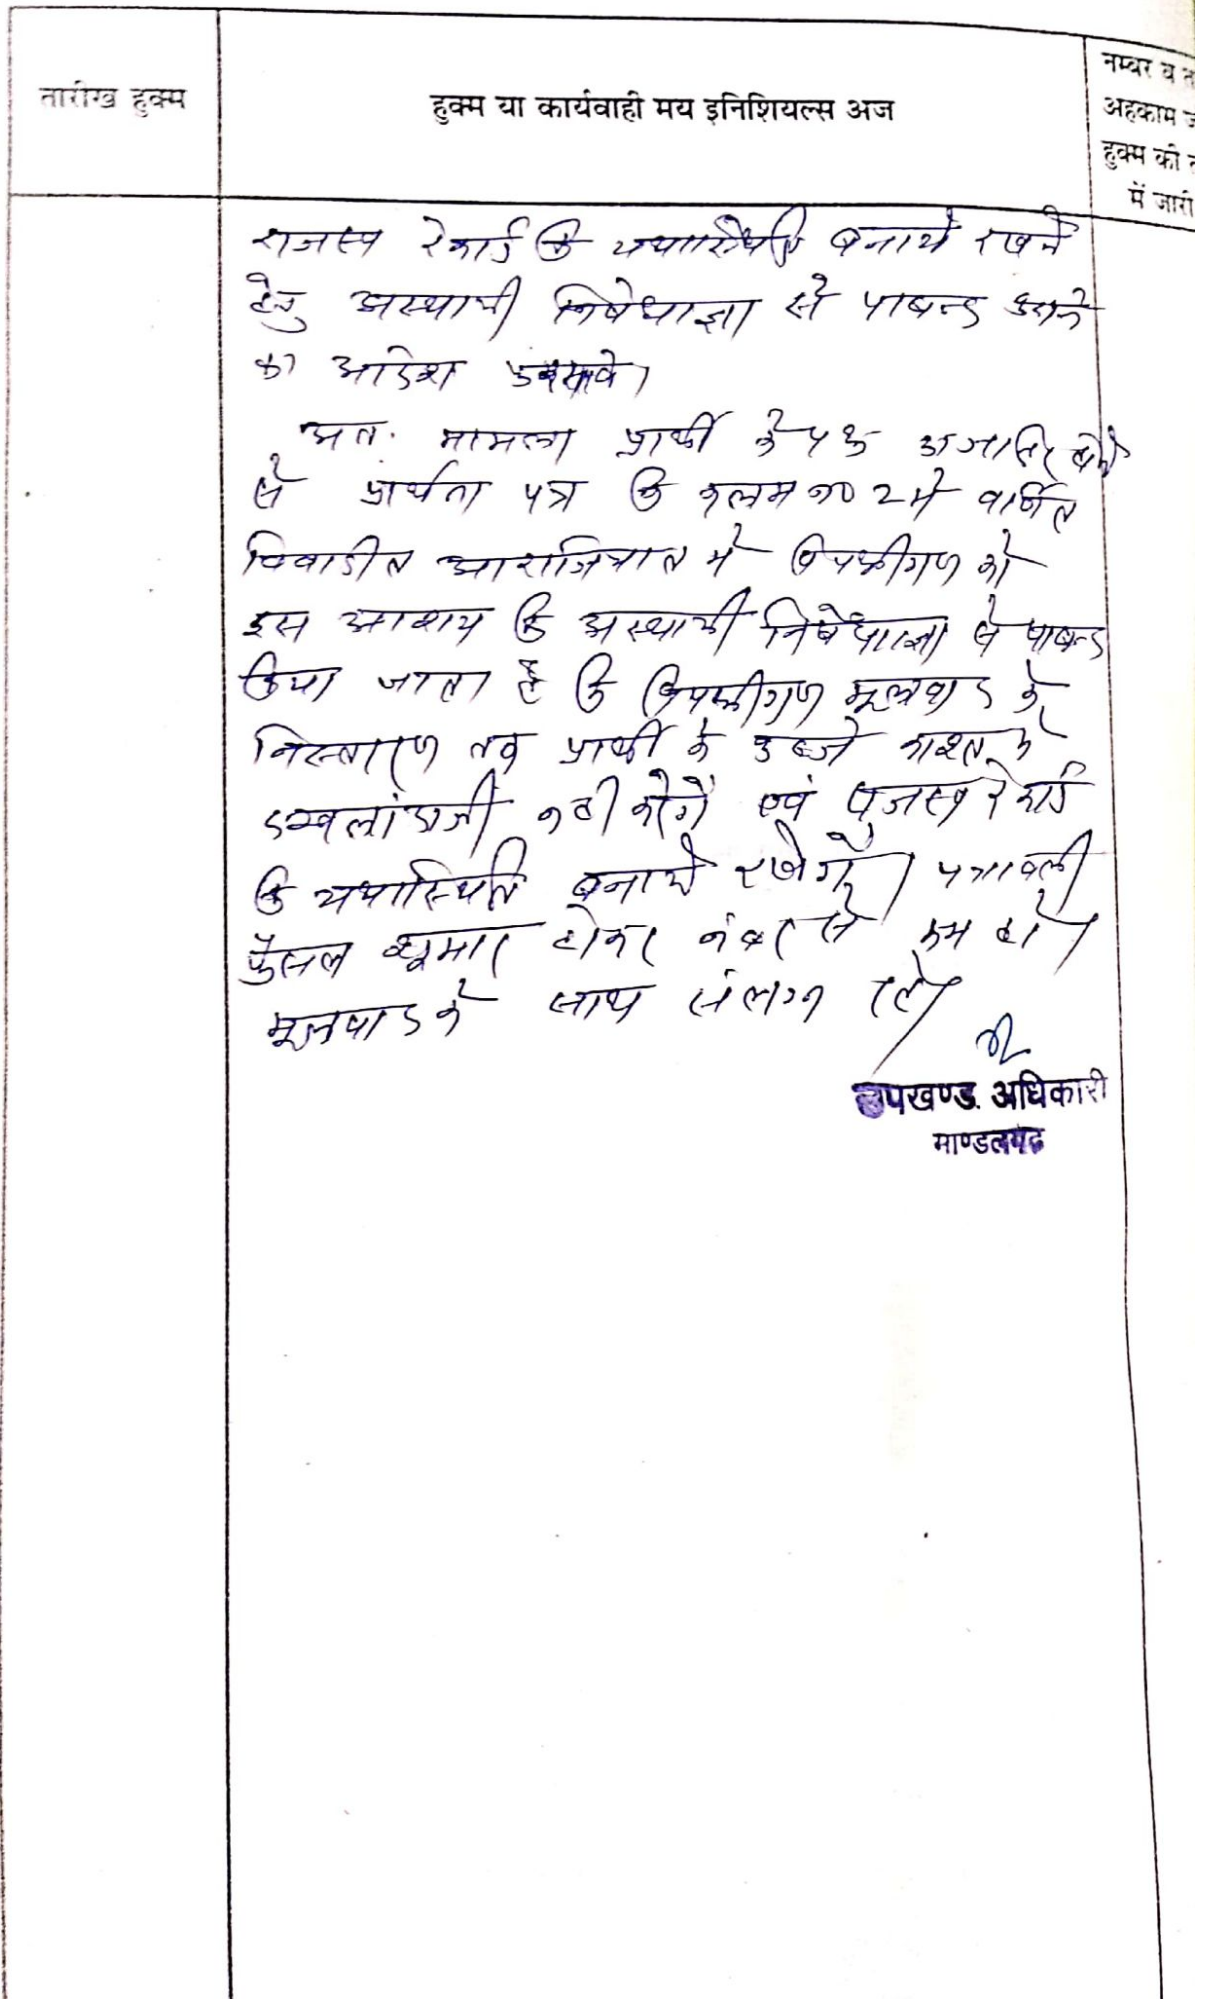 तारीख हुक्म
हुक्म या कार्यवाही मय इनिशियल्स अज
नम्बर व त
अहकाम ज
हुक्म की त
में जारी
राजस्व रेकार्ड कि यथास्थिति बनाये रखने
हेतु अस्थायी निषेधाज्ञा से पाबन्द कराने
का आदेश
अतः मामला प्रार्थी के पक्ष होने
से प्रार्थना पत्र कि कलम न0 2 मे वर्णित
विवादीत आराजियात मे विपक्षीगण को
इस आशय कि अस्थायी निषेधाज्ञा से पाबन्द
किया जाता है कि विपक्षीगण मूलवाद के
निस्तारण तक प्रार्थी के कब्जे काश्त मे
दखलांदाजी नही करेगें एवं राजस्व रेकार्ड
कि यथास्थिति बनाये रखेगें। पत्रावली
फैसल शूमार होकर नंबर से कम हो।
मूलवाद के साथ संलग्न रहे।
उपखण्ड अधिकारी
माण्डलगढ